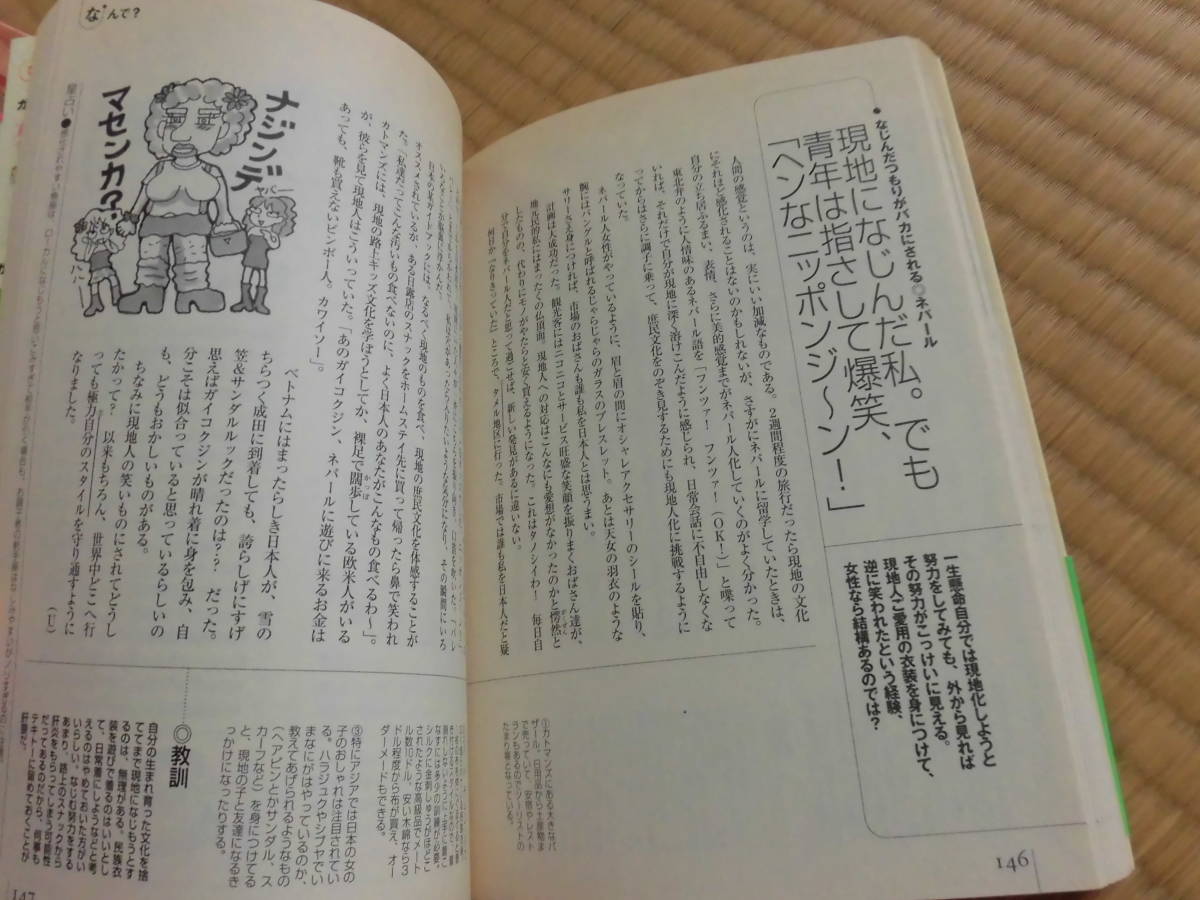 ●なじんだつもりがバカにされる◎ネパール
現地になじんだ私。でも
青年は指さして爆笑、
「ヘンなニッポンジ〜ン！」
一生懸命自分では現地化しようと
努力をしてみても、外から見れば
その努力がこっけいに見える。
現地人ご愛用の衣装を身につけて、
逆に笑われたという経験、
女性なら結構あるのでは？
人間の感覚というのは、実にいい加減なものである。２週間程度の旅行だったら現地の文化
にそれほど感化されることはないのかもしれないが、さすがにネパールに留学していたときは、
自分の立ち居ふるまい、表情、さらに美的感覚までがネパール人化していくのがよく分かった。
東北弁のように人情味のあるネパール語を「フンツァ！　フンツァ！（OK！）」と喋って
いれば、それだけで自分が現地に深く溶けこんだように感じられ、日常会話に不自由しなくな
ってからはさらに調子に乗って、庶民文化をのぞき見するためにも現地人化に挑戦するように
なっていた。
ネパール人女性がやっているように、眉と眉の間にオシャレアクセサリーのシールを貼り、
腕にはバングルと呼ばれるじゃらじゃらのガラスのブレスレット。あとは天女の羽衣のような
サリーさえ身につければ、市場のおばさんも誰も私を日本人とは思うまい。
計画は大成功だった。観光客にはニコニコとサービス旺盛な笑顔を振りまくおばさん達が、
地元民的私にはまったくの仏頂面。現地人への対応はこんなにも愛想がなかったのかと愕然と
したものの、代わりにモノがやたらと安く買えるようになった。これはタノシイわ！　毎日自
分で自分をネパール人だと思って過ごせば、新しい発見があるに違いない。
何日か「なりきっていた」ところで、タメル地区に行った。市場では誰も私を日本人だと疑
①カトマンズにある大きなバ
ザール。日用品から土産物ま
で売っていて、安宿やレスト
ランもあるのでツーリストの
たまり場となっている。
146
なんで？
メジンデ
ヤバー
マセンカ？
星占い●
日本のガイドブックには、なるべく現地のものを食べ、現地の庶民文化を体感することが
オススメされているが、ある日露店のスナックをホームステイ先に買って帰ったら鼻で笑われ
た。「私達だってこんな汚いもの食べないのに、よく日本人のあなたがこんなもの食べるわ〜」。
カトマンズには、現地の路上キッズ文化を学ぼうとしてか、裸足で闊歩している欧米人がいる
が、彼らを見て現地人はこういっていた。「あのガイコクジン、ネパールに遊びに来るお金は
あっても、靴も買えないビンボー人。カワイソー」。
ベトナムにはまったらしき日本人が、雪の
ちらつく成田に到着しても、誇らしげにすげ
笠＆サンダルルックだったのは？？　だった。
思えばガイコクジンが晴れ着に身を包み、自
分こそは似合っていると思っているらしいの
も、どうもおかしいものがある。
ちなみに現地人の笑いものにされてどうし
たかって？　以来もちろん、世界中どこへ行
っても極力自分のスタイルを守り通すように
なりました。　（U）
なすには多少の訓練が必要。
シルクに金刺しゅうがほどこ
されたような高級品でメート
ル数10ドル、安い木綿なら3
ドル程度から布が買え、オー
ダーメードもできる。
③特にアジアでは日本の女の
子のおしゃれは注目されてい
る。ハラジュクやシブヤでい
まなにがはやっているのか、
教えてあげられるようなもの
（ヘアピンとかサンダル、ス
カーフなど）を身につけてる
と、現地の子と友達になるき
っかけになったりする。
◎教訓
自分の生まれ育った文化を捨
ててまで現地になじもうとす
るのは、無理がある。民族衣
装を遊びで着るのはいいとし
て、日常着にしようなどと考
えるのはやめておいた方がい
いらしい。なじむ努力をする
あまり、路上のスナックから
肝炎をもらってしまう可能性
だってあるのだから、何事も
テキトーに留めておくことが
肝要だ。
147